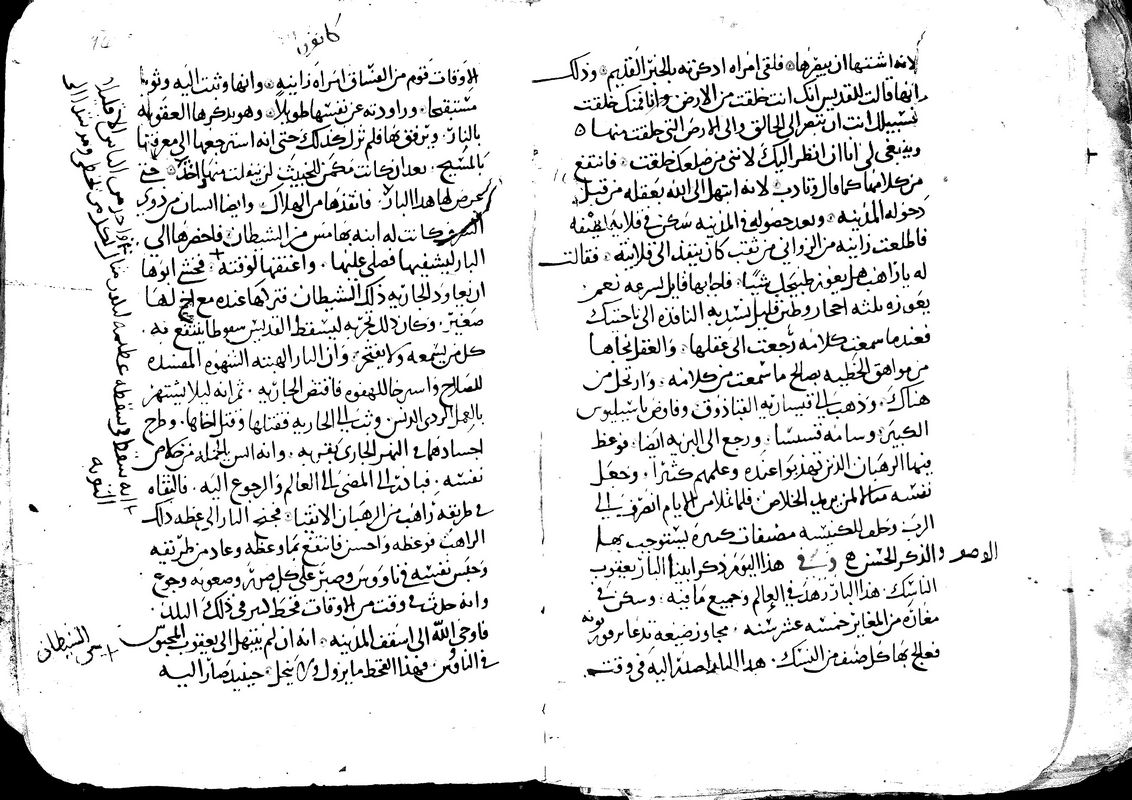 لانه اشتهاان يبقرها فلقي امراه ادكرته بالخبر القديم وذلك
انها قالت للقديس انك انت خلقت من الارض وانا منك خلقت
فسبيلك انت ان تنظر الى الخالق والى الارض التي خلقت منها
وينبغي لي انا ان انظر اليك لانني من ضلعك خلقت فانتفع
من كلامها كما قال وتادب لانه ابتهل الى الله بعقله من قبل
دخوله المدينه وبعد حصوله في المدينه سكن في قلايه لطيفه
فاطلعت زانيه من الزواني من ثقب كان ينفذ الى قلايته فقالت
له ياراهب هل يعوز طبيخك شيئا فاجابها قايل بسرعه نعم
يعوزه ثلثه احجار وطين قليل لسد به النافذه الى ناحيتك
فعندما سمعت كلامه رجعت الى عقلها والعقل نجاها
من مواهق الخطيه بصالح ما سمعت من كلامه وارتحل من
هناك وذهب الى قيساريه القباذوق وفاوض باسيليوس
الكبير وسامه قسيسا ورجع الى البريه ايضا فوعظ
فيها الرهبان الذين تهدبوا عنده وعلمهم كثيرا وجعل
نفسه مثالا لمن يريد الخلاص فلما تملا من الايام انصرف الى
الرب وخلف للكنيسه مصنفات كثيره يستوجب بها
والذكر الحسن وفي هذا اليوم ذكر ابينا البار يعقوب
الناسك هذا البار زهد في العالم وجميع ما فيه وسكن في
مغاره من المغاير خمسه عشر سنه مجاور ضيعه تدعا
فعالج بها كل صنف من النسك هذا البار اصلد اليه في وقت من
كانون
الاوقات قوم من الفساق امراه زانيه وانها وثبت اليه
مستقبحا وراودته عن نفسها طويلا وهو يذكرها العقوبه
بالنار وترفق بها فلم تزل كذلك حتى انه استرجعها الى معرفتها
بالمسيح بعد ان كانت مكمن للخبيث
لهذا البار فانقذها من الهلاك وايضا انسان من دوي
كانت له ابنه بها مس من الشيطان فاحضرها الى
البار ليشفيها فصلى عليها واعتقها لوقته فخشي ابوها
ان يعاود الجاريه ذلك الشيطان فتركها عنده مع اخ لها
صغير وكان ذلك تجربه ليسقط القديس سقوطا ينتفع به
كل من يسمعه ولا يفتخر وان البار الهبته الشهوه المفسده
للصلاح واسترخا للهفوه فافتض الجاريه ثم انه ليلا يشتهر
بالعمل الردي الدنس وثب الى الجاريه فقتلها وقتل اخاها وطرح
اجسادهما في النهر الجاري بقربه وانه ايس بالجمله من خلاص
نفسه فبادر الى المضى الى العالم والرجوع اليه فالتقاه
في طريقه راهب من الرهبان الاتقيا فجنح البار الى عظه ذلك
الراهب فوعظه واحسن فانتفع بما وعظه وعاد من طريقه
وحبس نفسه في ناووس وصبر على كل ضر وصعوبه وجوع
وانه حدث في وقت من الاوقات قحط كبير في ذلك البلد
فاوحي الله الى اسقف المدينه انه ان لم يبتهل الى يعقوب المحبوس
في الناووس فهذا القحط ما يزول ولا ينحل حينيد صار اليه